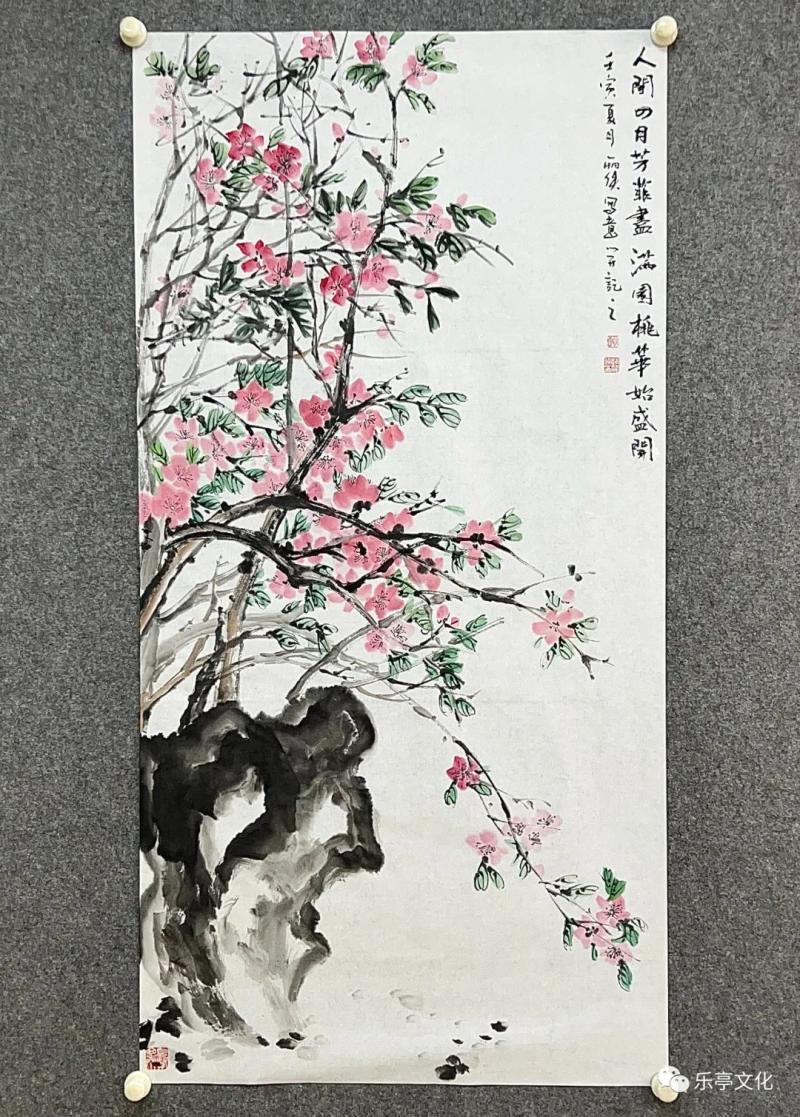 人間四月芳菲盡 滿園桃華始盛開
壬寅夏月 寫意并記之
乐亭文化